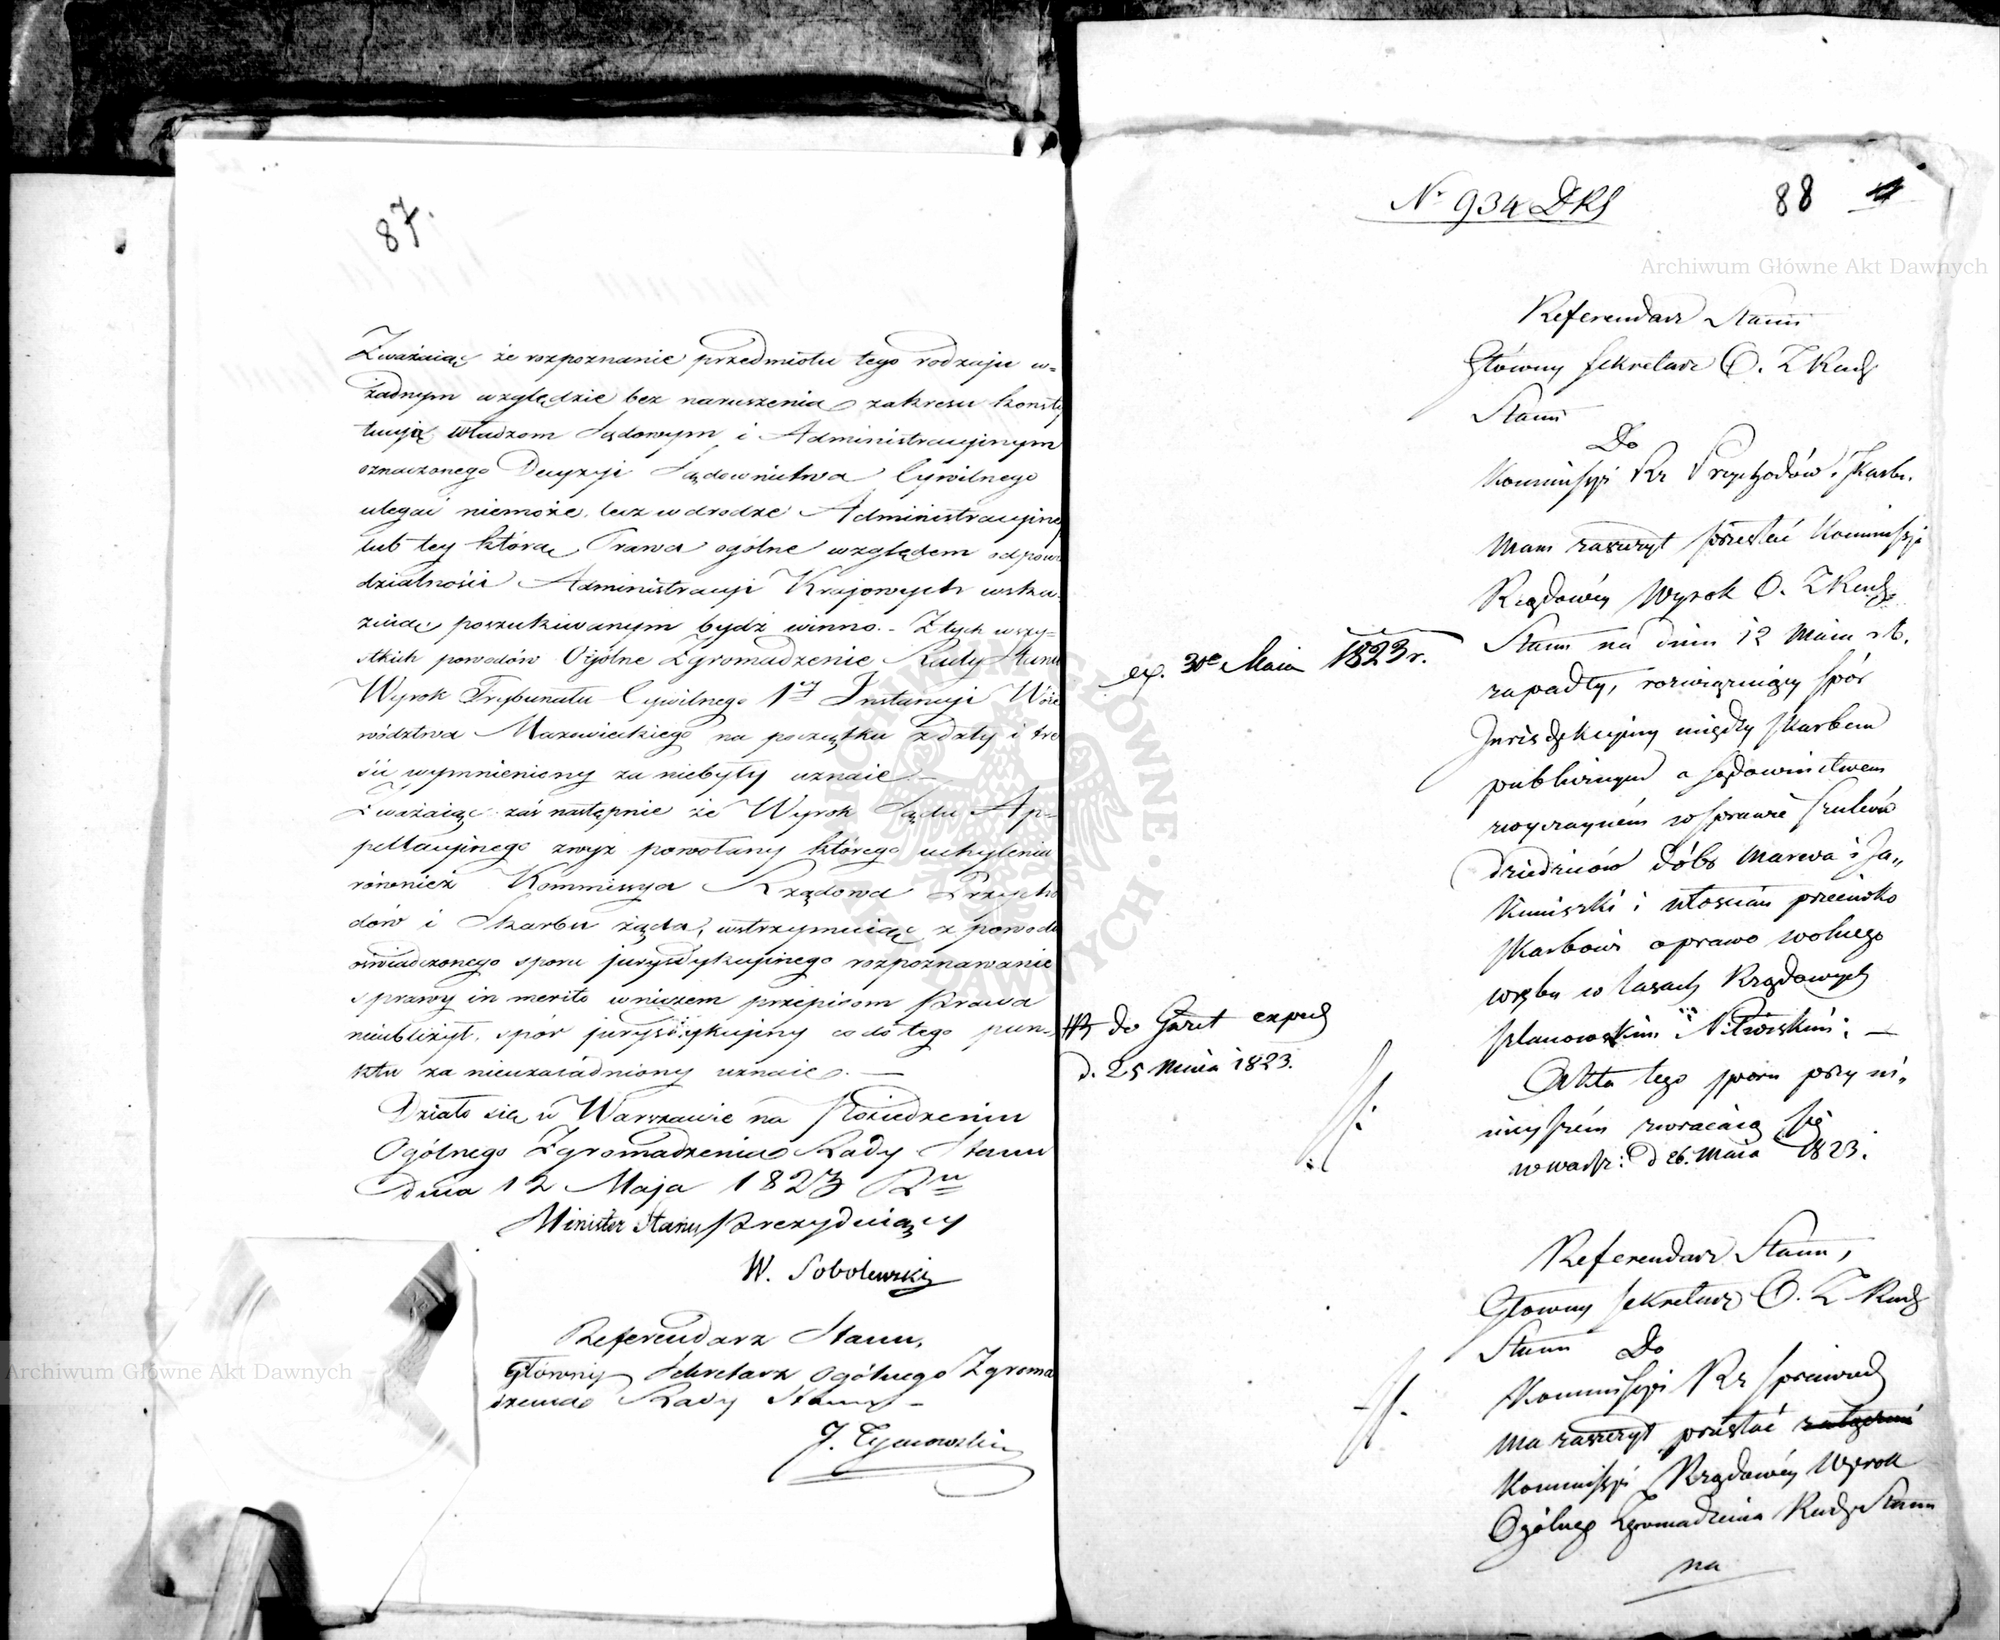 87.
Zważaiąc że rozpoznanie przedmiotu tego rodzaju w-
żadnym względzie bez naruszenia zakresu konsty
tucyią władzom Sądowym i Administracyinym
oznaczonego Decyzyi Sądownictwa Cywilnego
ulegać niemoże, lecz w drodze Administracyiney
lub tey którą Prawa ogólne względem odpowie
dzialności Administracyi Krajowych wska-
zuią, poszukiwanym bydź winno. - Z tych wszy-
stkich powodów Ogólne Zgromadzenie Rady Stanu
Wyrok Trybunału Cywilnego 1ey Instancyi Woie
wództwa Mazowieckiego na początku z daty i tre
ści wymieniony za niebyły uznaie. -
Zważaiąc zaś następnie że Wyrok Sądu Ap-
pellacyinego zwyż powołany którego uchylenia
również Kommissya Rządowa Przycho
dów i Skarbu żąda, wstrzymuiąc z powodu
oświadczonego sporu jurysdykcyinego rozpoznawanie
sprawy in merito w niczem przepisom Prawa
nieubliżył, spór jurysdykcyiny co do tego pun-
ktu za nieuzasadniony uznaie. -
Działo się w Warszawie na Posiedzeniu
Ogólnego Zgromadzenia Rady Stanu
dnia 12 Maja 1823 Ru
Minister Stanu Prezyduiący
W. Sobolewski
Referendarz Stanu,
Główny Sekretarz Ogólnego Zgroma
dzenia Rady Stanu -
J. Tymowski
Nr 934 DRS
88
Archiwum Główne Akt Dawnych
Referendarz Stanu
Główny Sekretarz O. Z Rady
Stanu
Do
Kommissyi Rz Przychodów i Skarbu.
Mam zaszczyt przesłać Kommissyi
Rządowéy Wyrok O. Z Rady
Stanu na dniu 12 Maia r.b.
zapadły, rozwiązuiący spór
Jurisdykcyiny między Skarbem
publicznym a sądownictwem
zwyczayném w sprawie
dziedziców dóbr i
i włościan przeciwko
Skarbowi o prawo wolnego
wrębu w lasach Rządowych
i
Akta tego sporu przy ni„
nieyszém zwracaią się
w Warsz: d 26. Maia 1823.
ex. 30e Maia 1823 r.
do exped
d. 25 Maia 1823.
Referendarz Stanu,
Główny Sekretarz O. Z Rady
Stanu Do
Kommissyi Rz Sprawied
Ma zaszczyt przesłać
Kommissyi Rządowéy Wyrok
Ogólnego Zgromadzenia Rady Stanu
na
Archiwum Główne Akt Dawnych
ARCHIWUM GŁÓWNE AKT DAWNYCH